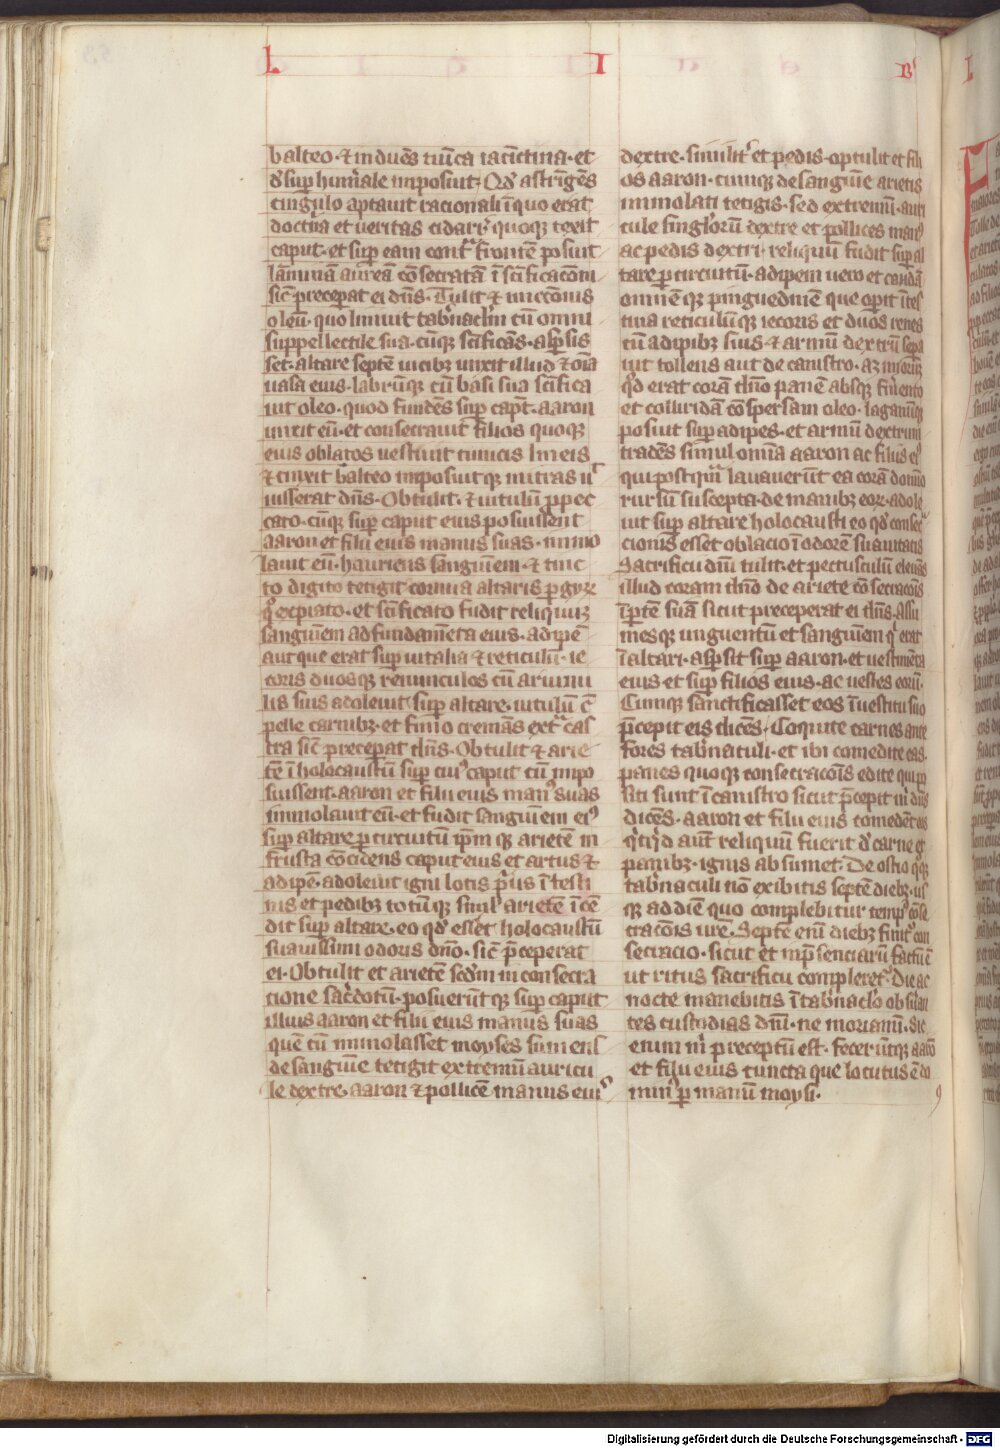 L I Bꝰ
balteo · ⁊ induēs tunica iacīctina · et
d̄sup humͥale imposuit · Qd̓ astrīgēs
cingulo aptauit racionali ī quo erat
doctͥna et ueritas cidari quoqꝫ texit
caput · et sup eam contͣ frontē posuit
laminā aureā cōsecratā ī sc̄ificacōni
sic̄ preceperat ei dn̄s · Tulit ⁊ unccōnis
oleū · quo liniuit tab̓nac̄lm cū omni
suppellectile sua · cūqꝫ sc̄ificās · aspsis
set · altare septē uicibꝫ unxit illud ⁊ oīa
uasa eius · labrūqꝫ cū basi sua sc̄ifica
uit oleo · quod fundēs sup capt̄ · aaron
unxit eū · et consecrauit · filios quoqꝫ
eius oblatos uestiuit tunicis lineis
⁊ cinxit balteo imposuitqꝫ mitras ut
iusserat dn̄s · Obtulit · ⁊ uitulū p pec
cato · cūqꝫ sup caput eius posuissent
aaron et filii eius manus suas · immo
lauit eū · hauriens sanguinem · ⁊ tinc
to digito tetigit cornua altaris p gyꝝ
qͦ expiato · et sc̄ificato fudit reliquūꝫ
sanguinem ad fundamēta eius · adipē
aut que erat sup uitalia ⁊ reticulū · ie
coris duosqꝫ renunculos cū aruinu
lis suis adoleuit sup altare · uitulū cū
pelle carnibꝫ · et fimo cremās extͣ cas
tra sic̄ preceperat dn̄s · Obtulit ⁊ arie
tē ī holocaustū sup cuiꝰ caput cū impo
suissent · aaron et filii eius manꝰ suas
immolauit eū · et fudit sanguinem eiꝰ
sup altare p circuitū ipm̄ qꝫ arietē in
frusta cōcidens caput eius et artus ⁊
adipē · adoleuit igni lotis pͥus ītesti
nis et pedibꝫ totūqꝫ simlͥ arietē īcē
dit sup altare · eo qd̓ esset holocaustū
suauissimi odoris dn̄o · sic̄ p̄ceperat
ei · Obtulit et arietē scd̄m in consecra
cione sac̓dotū · posuerūtqꝫ sup caput
illius aaron et filii eius manus suas
quē cū immolasset moyses sumens
de sanguine tetigit extremū auricu
le dextre · aaron ⁊ pollicē manus eiuꝰ
dextre · similit̓ et pedis · optulit et fili
os aaron · cumqꝫ de sanguine arietis
immolati tetigis · sed extremū · auri
cule singlorū dextre et pollices manꝰ
ac pedis dextri · reliquū fudit sup al
tare p circuitū · adipem uero et caudā
omnē qꝫ pinguedinē que opit ītes
tina reticulūqꝫ iecoris et duos renes
cū adipibꝫ suis ⁊ armū dextrū sepa
uit tollens aut de canistro · azimorūꝫ
qd̓ erat corā dn̄o panē absqꝫ frm̄ento
et colliridā cōspersam oleo · laganūqꝫ
posuit sup adipes · et armū dextrum
tradēs simul omnia aaron ac filiis eiꝰ
qui postqͣm leuauerūt ea corā domīo
rursū suscepta · de manibꝫ eoꝝ · adole
uit sup altare holocausti eo qd̓ consec̓
cionis esset oblacio ī odorē suauitatis
Sacrificii dn̄i tulit · et pectusculū eleuās
illud coram dn̄o de ariete cōsecracōis
ī ptē suā sicut preceperat ei dn̄s · assu
mesqꝫ unguentū et sanguinem qͥ erat
ī altari · aspsit sup aaron · et uestimēta
eius et sup filios eius · ac uestes eorū ·
Cumqꝫ sanctificasset eos ī uestitu suo
p̄cepit eis dicēs · Coquite carnes ante
fores tab̓naculi · et ibi comedite eas ·
panes quoqꝫ consecracōis edite qui po
siti sunt ī canistro sicut p̄cepit m̄ dn̄s
dicēs · aaron et filii eius comedēt eos
qͥcqͥd aut̄ reliquū fuerit d̓ carne et
panibꝫ · ignis absumet · De ostio qͦqꝫ
tab̓naculi nō exibitis septē diebꝫ · us
qꝫ ad diē quo complebitur tempꝰ cōse
cracōis ur̄e · Septē eni diebꝫ finitͬ con
secracio · sicut et imp̄senciarū factū ē
ut ritus sacrificii compleret̓ · Die ac
nocte manebitis ī tab̓naclo obseruan
tes custodias dn̄i · ne moriamī · sic
enim m̄ preceptū est · fecerūtqꝫ aarō
et filii eius cuncta que locutus ē do
minꝰ p manū moysi ·
Digitalisierung gefördert durch die Deutsche Forschungsgemeinschaft - DFG